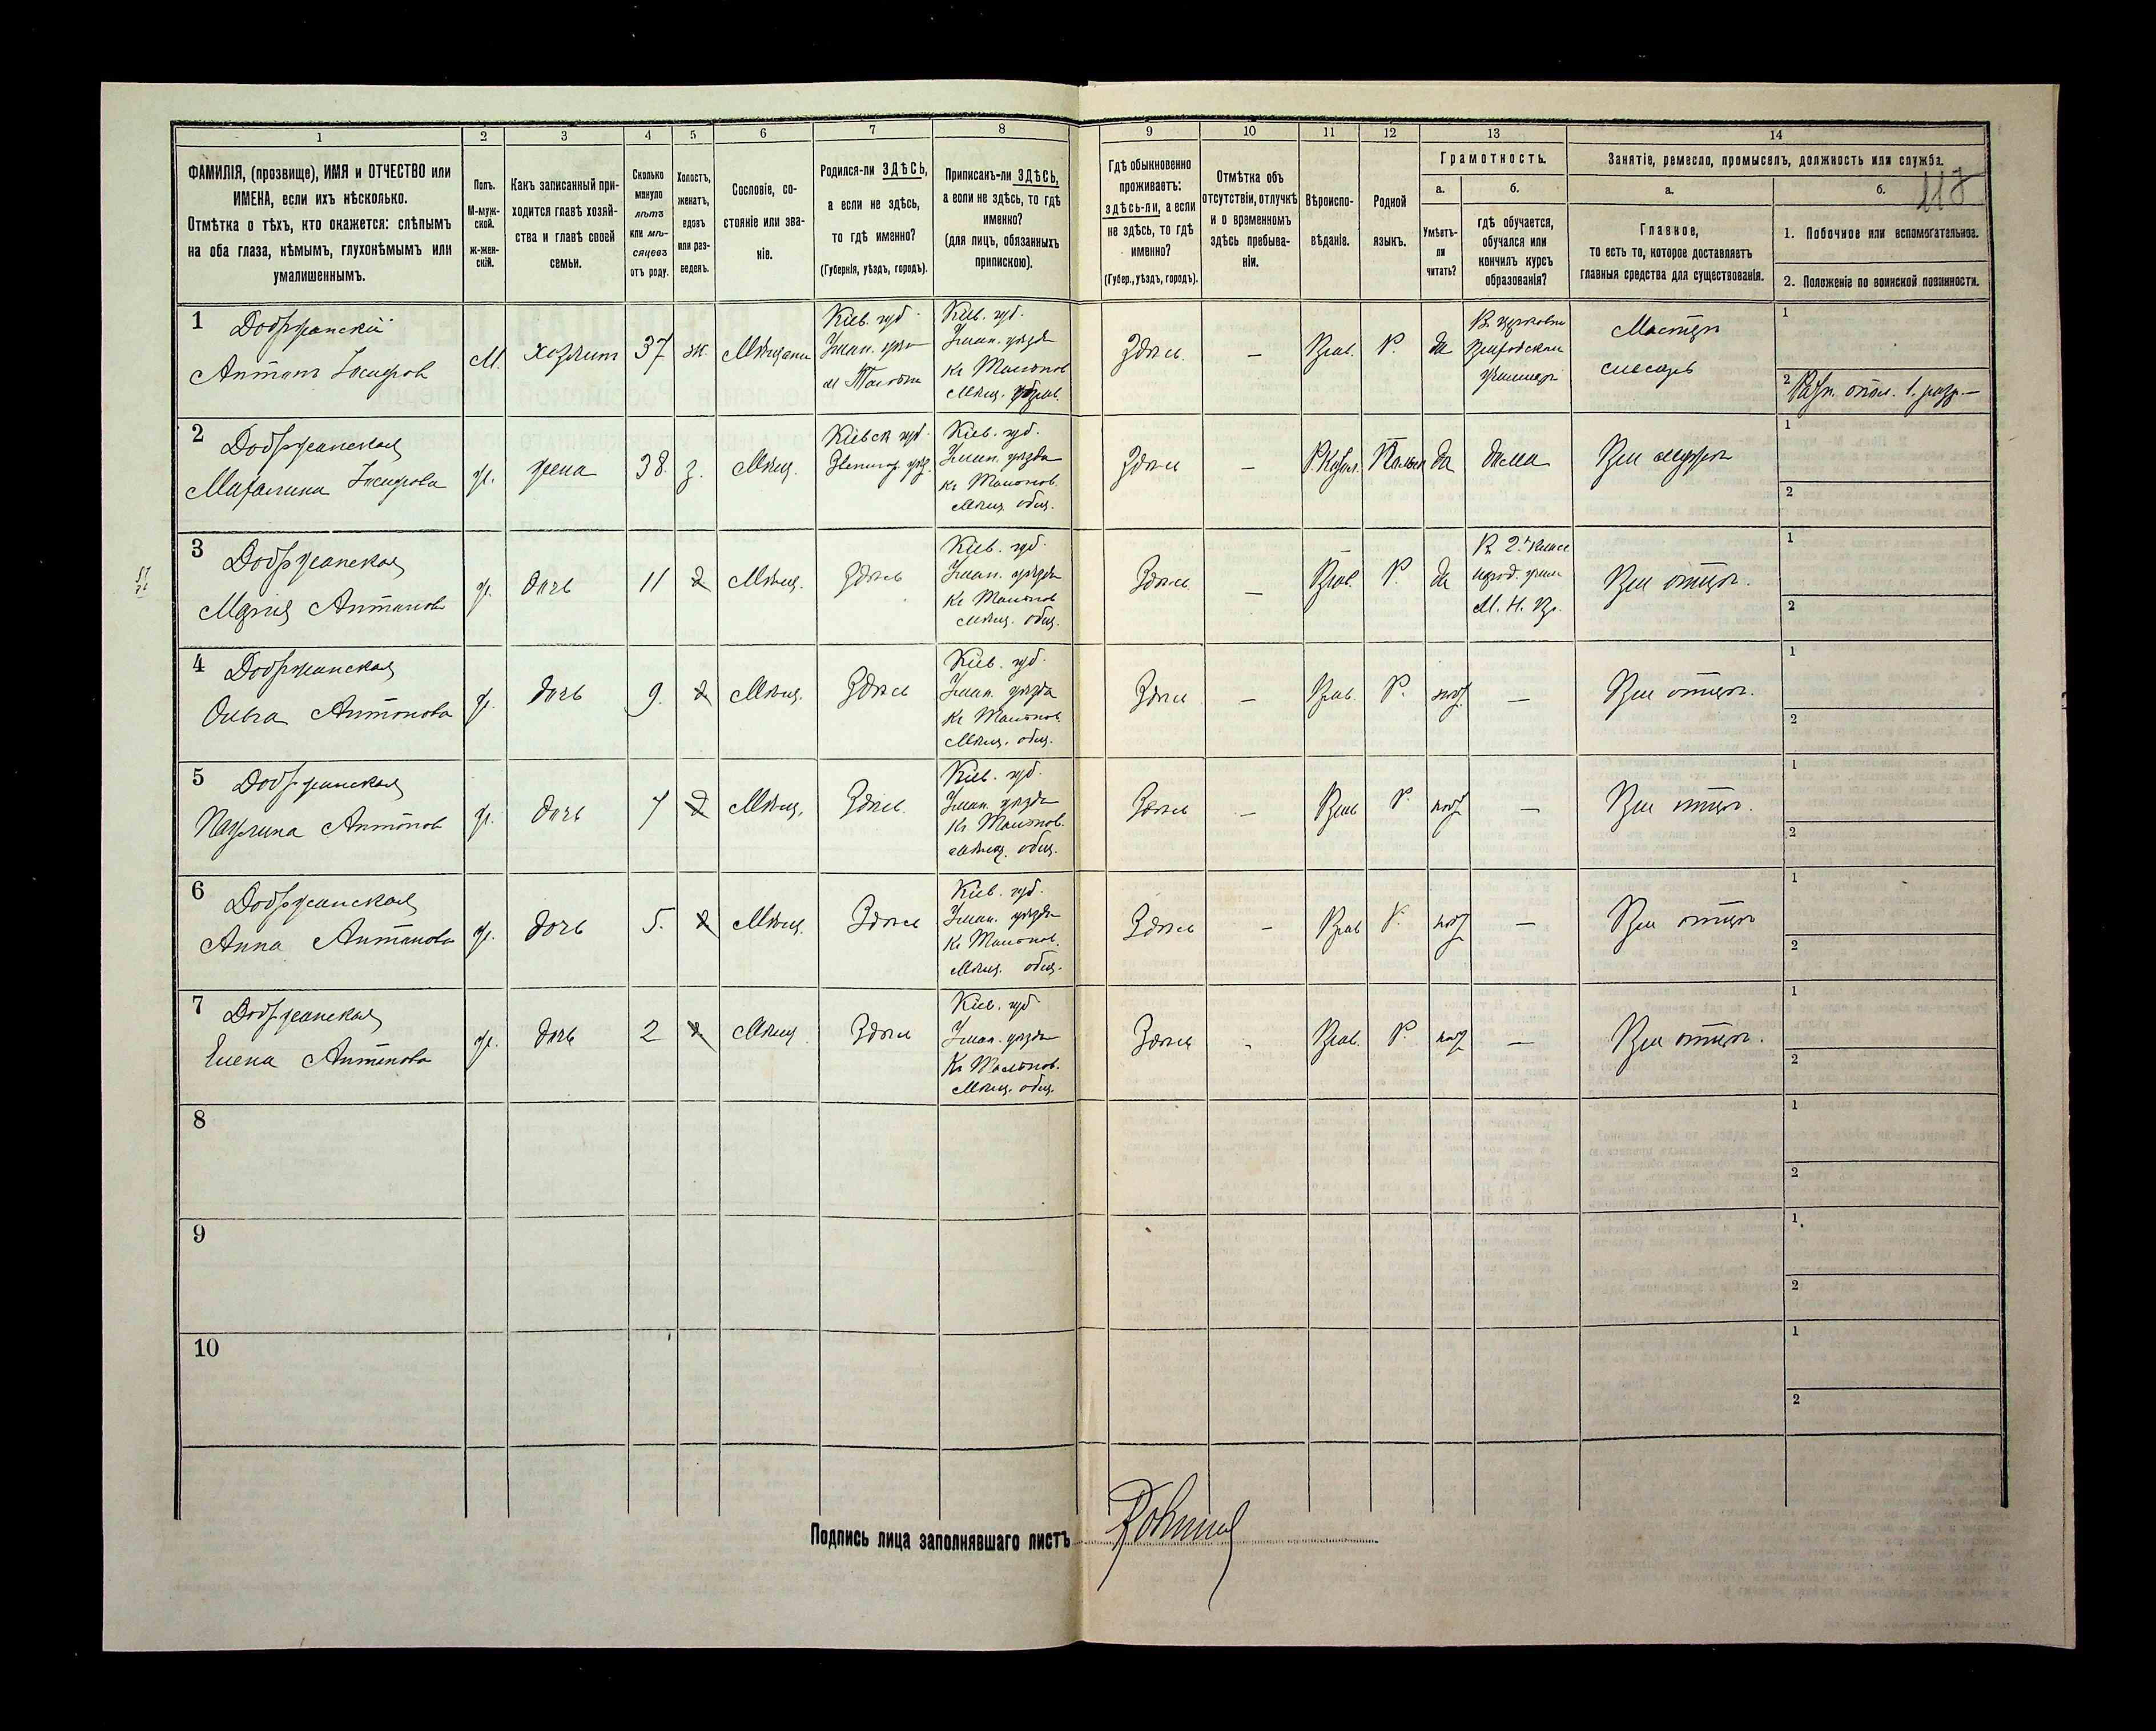 1 2 3 4 5 6 7 8 9 10 11 12 13 14
ФАМИЛІЯ, (прозвище), ИМЯ и ОТЧЕСТВО или
ИМЕНА, если ихъ нѣсколько.
Отмѣтка о тѣхъ, кто окажется: слѣпымъ
на оба глаза, нѣмымъ, глухонѣмымъ или
умалишеннымъ.
Полъ.
М-муж-
ской.
ж-жен-
скій.
Какъ записанный при-
ходится главѣ хозяй-
ства и главѣ своей
семьи.
Сколько
минуло
лѣтъ
или мѣ-
сяцевъ
отъ роду.
Холостъ,
женатъ,
вдовъ
или раз-
веденъ.
Сословіе, со-
стояніе или зва-
ніе.
Родился-ли ЗДѢСЬ,
а если не здѣсь,
то гдѣ именно?
(Губернія, уѣздъ, городъ).
Приписанъ-ли ЗДѢСЬ,
а если не здѣсь, то гдѣ
именно?
(для лицъ, обязанныхъ
припискою).
Гдѣ обыкновенно
проживаетъ:
здѣсь-ли, а если
не здѣсь, то гдѣ
именно?
(Губер., уѣздъ, городъ).
Отмѣтка объ
отсутствіи, отлучкѣ
и о временномъ
здѣсь пребыва-
ніи.
Вѣроиспо-
вѣданіе.
Родной
языкъ.
Грамотность.
а.
Умѣетъ-
ли
читать?
б.
гдѣ обучается,
обучался или
кончилъ курсъ
образованія?
Занятіе, ремесло, промыселъ, должность или служба.
а.
Главное,
то есть то, которое доставляетъ
главныя средства для существованія.
б.
118
1. Побочное или вспомогательное.
2. Положеніе по воинской повинности.
1
Добржанскій
Антонъ Іосифовъ
М.
хозяинъ
37
ж.
Мѣщанин
Кіев. губ.
Уман. уѣзд
м Тальное
Кіев. губ.
Уман. уѣзда
Къ Тальнов
Мѣщ.
Здѣсь
—
Прав.
Р.
да
Мастеръ
слесарь
1
2 Ратн. опол. 1. разр. —
2
Добржанская
Іосифова
ж.
жена
38.
з.
Мѣщ.
Кіевск губ.
Звенигор. уѣз.
Кіев. губ.
Уман. уѣзда
Къ Тальнов.
Мѣщ. общ.
Здѣсь
—
Р. Катол.
Польск
да
дома
При мужѣ
1
2
3
Добржанская
Марія Антонова
ж.
дочь
11
д
Мѣщ.
Здѣсь
Кіев. губ.
Уман. уѣзда
Къ Тальнов
Мѣщ. общ.
Здѣсь
—
Прав.
Р.
да
В 2.х класс
народ. учил
М. Н. Пр.
При отцѣ.
1
2
4
Добржанская
Ольга Антонова
ж.
дочь
9.
д
Мѣщ.
Здѣсь
Кіев. губ.
Уман. уѣзда
Къ Тальнов.
Мѣщ. общ.
Здѣсь
—
Прав.
Р.
нѣт
—
При отцѣ.
1
2
5
Добржанская
Антонов
ж.
дочь
7
д
Мѣщ.
Здѣсь.
Кіев. губ.
Уман. уѣзда
Къ Тальнов.
Мѣщ. общ.
Здѣсь
—
Прав
Р.
нѣт
—
При отцѣ.
1
2
6
Добржанская
Анна Антонова
ж.
дочь
5.
д
Мѣщ.
Здѣсь
Кіев. губ.
Уман. уѣзда
Къ Тальнов.
Мѣщ. общ.
Здѣсь
-
Прав
Р.
нѣт
—
При отцѣ
1
2
7
Добржанская
Елена Антонова
ж.
дочь
2
д
Мѣщ.
Здѣсь
Кіев. губ
Уман. уѣзда
Къ Тальнов.
Мѣщ. общ.
Здѣсь
-
Прав.
Р.
нѣт
—
При отцѣ.
1
2
8
1
2
9
1.
2
10
1
2
Подпись лица заполнявшаго листъ